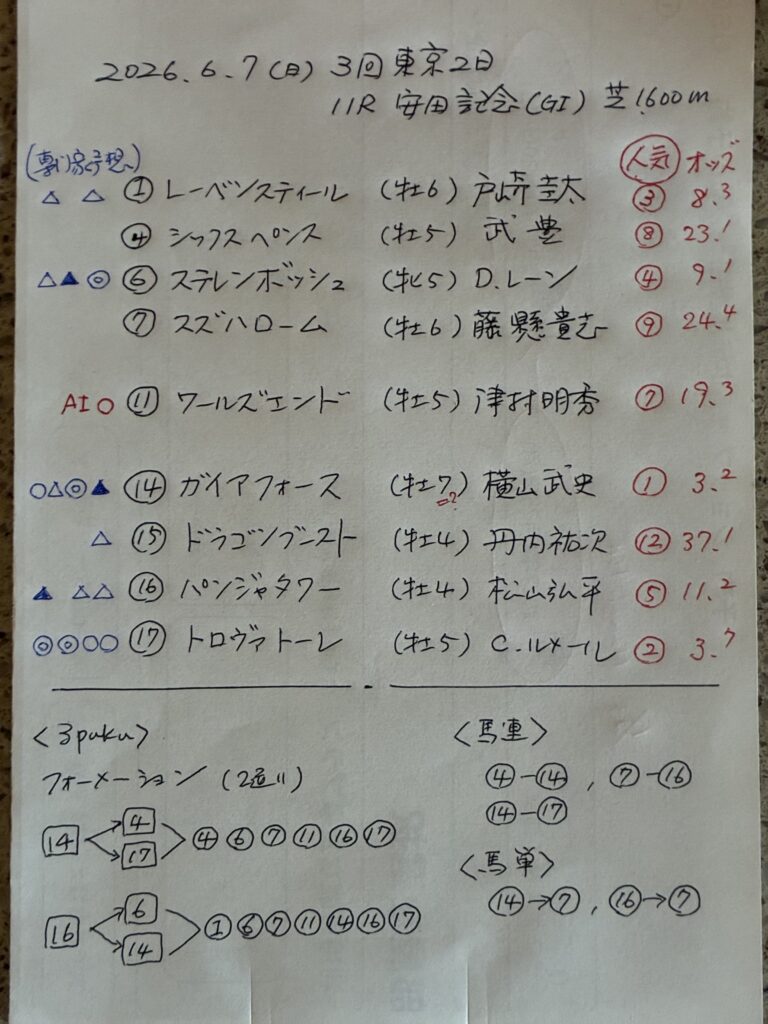 2026.6.7(日) 3回東京2日
11R 安田記念(GI) 芝1600m
(専門家予想) 人気 オッズ
△ △ ① レーベンスティール (牡6) 戸崎圭太 ③ 8.3
④ シックスペンス (牡5) 武豊 ⑧ 23.1
△▲◎ ⑥ ステレンボッシュ (牝5) D.レーン ④ 9.1
⑦ スズハローム (牡6) 藤懸貴志 ⑨ 24.4
AI○ ⑪ ワールズエンド (牡5) 津村明秀 ⑦ 19.3
○△◎▲ ⑭ ガイアフォース (牡7) 横山武史 ① 3.2
△ ⑮ ドラゴンブースト (牡4) 丹内祐次 ⑫ 37.1
▲ △△ ⑯ パンジャタワー (牡4) 松山弘平 ⑤ 11.2
◎◎○○ ⑰ トロヴァトーレ (牡5) C.ルメール ② 3.7
<3puku>
フォーメーション (2通り)
14 4 17 ④⑥⑦⑪⑯⑰
16 6 14 ①⑥⑦⑪⑭⑯⑰
<馬連>
④-⑭, ⑦-⑯
⑭-⑰
<馬単>
⑭→⑦, ⑯→⑦